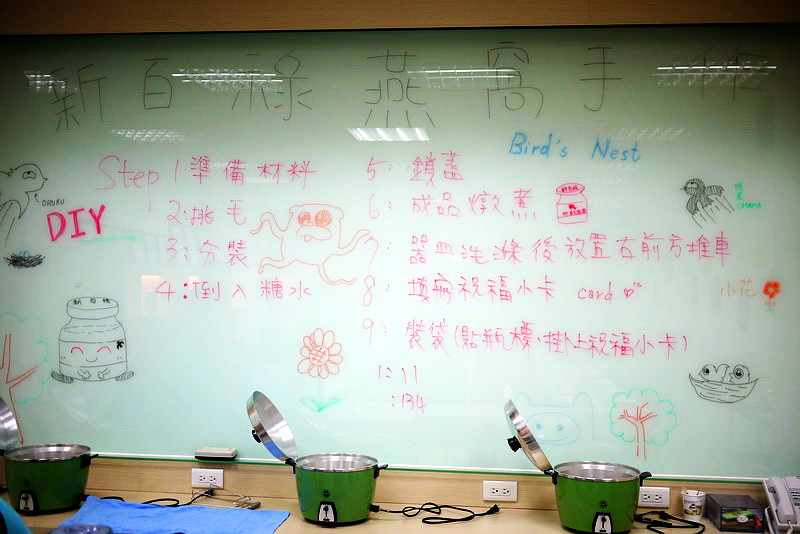 新百祿燕窩手作
Bird's Nest
DIY
ORURU
Step 1:準備材料
2:挑毛
3:分裝
4:倒入糖水
5:鎖蓋
6:成品燉煮
7:器皿洗滌後放置右前方推車
8:填寫祝福小卡 card
9:裝袋(貼瓶標、掛上祝福小卡)
小花
1:11
:134